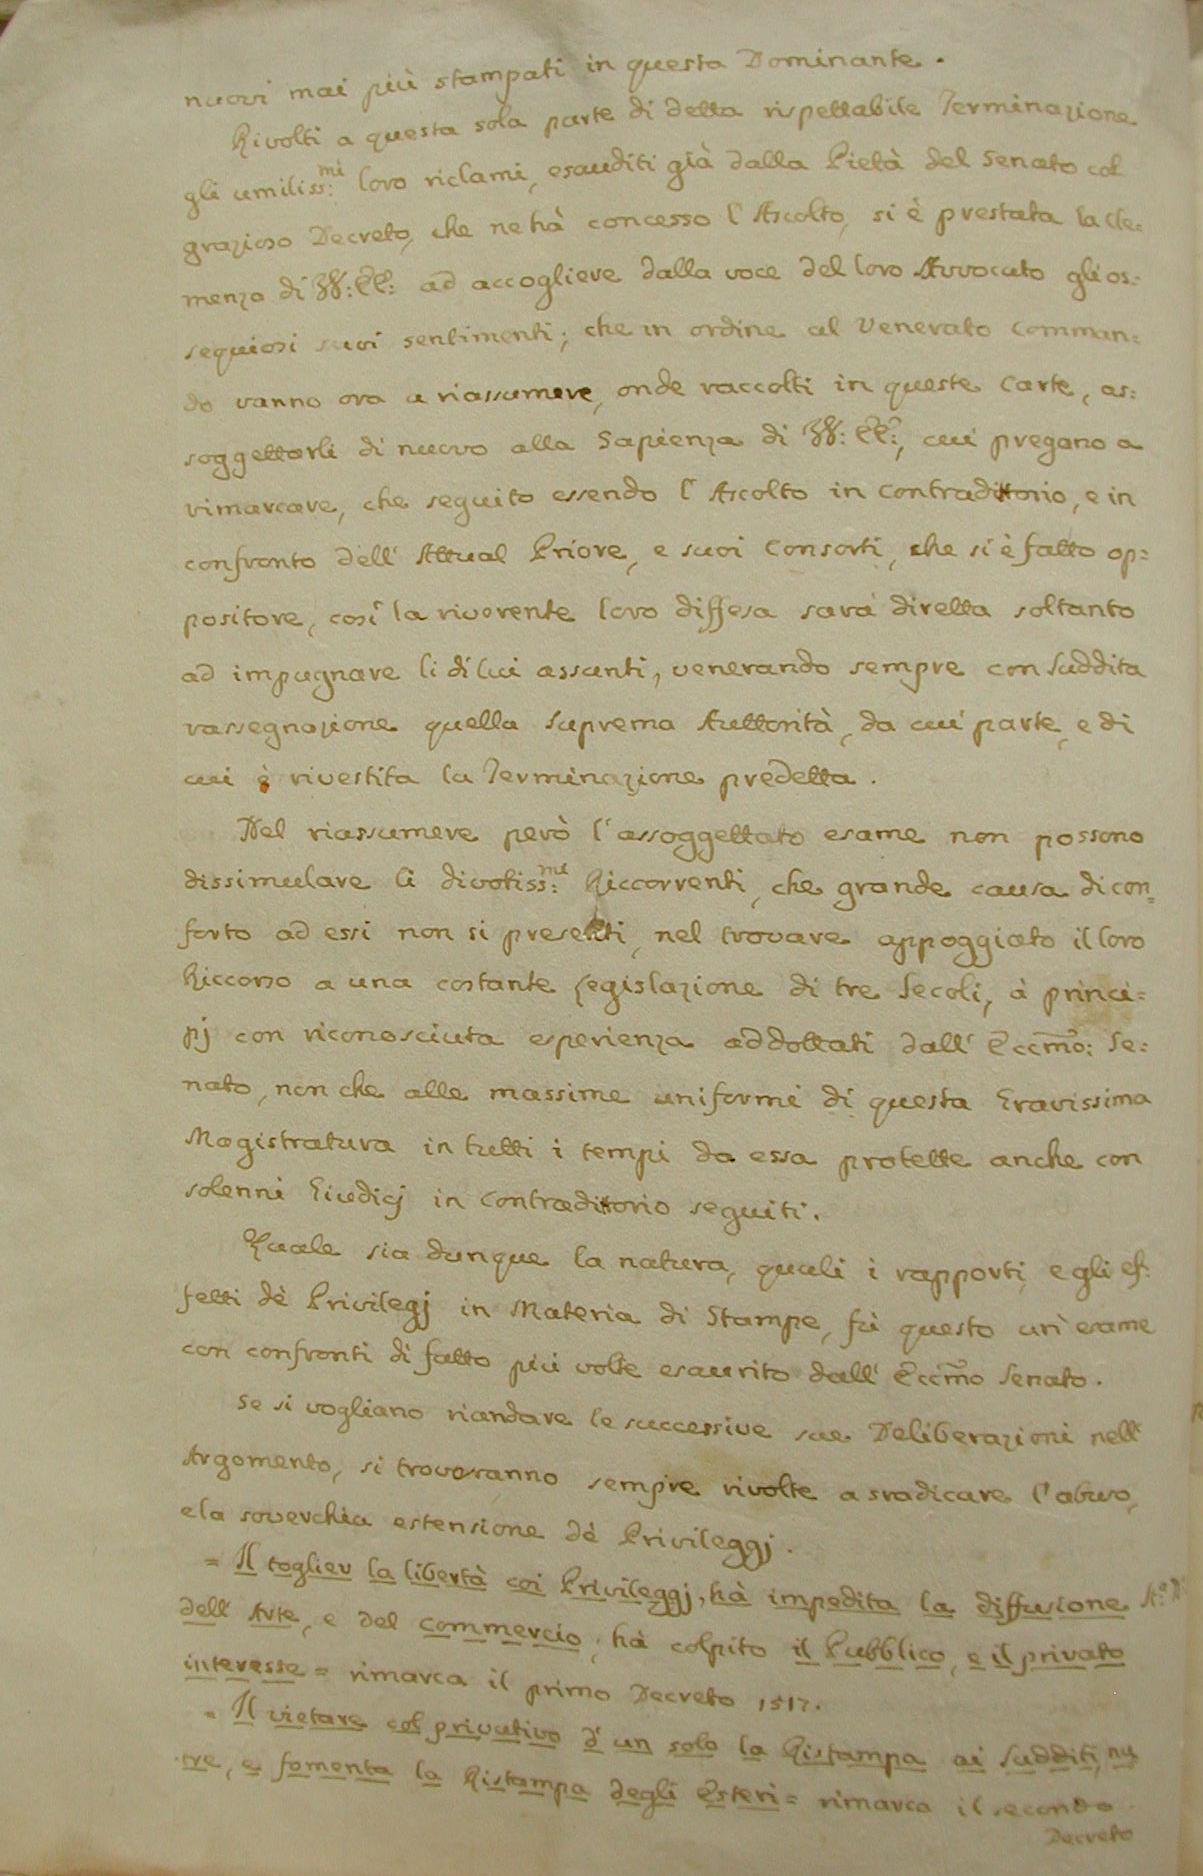 nuovi mai più stampati in questa Dominante.
Rivolti a questa sola parte di detta rispettabile Terminazione
gli umiliss:mi loro riclami, esauditi già dalla Pietà del Senato col
grazioso Decreto, che ne hà concesso l'Ascolto, si è prestata la Cle:
menza di VV:EE: ad accogliere dalla voce del loro Avvocato gli os:
sequiosi suoi sentimenti; che in ordine al Venerato Comman:
do vanno ora a riassumere, onde raccolti in queste Carte, as:
soggettarli di nuovo alla Sapienza di VV: EE:, cui pregano a
rimarcare, che seguito essendo l'Ascolto in Contradittorio, e in
confronto dell'Attual Priore, e suoi Consorti, che si è fatto op:
positore, così la riverente loro diffesa sarà diretta soltanto
ad impugnare li di lui assunti, venerando sempre con suddita
rassegnazione quella Suprema Auttorità, da cui parte, e di
cui è rivestita la Terminazione predetta.
Del riassumere però l'assoggettato esame non possono
dissimulare li divotiss:mi Riccorrenti, che grande causa di con:
forto ad essi non si presenti, nel trovare appoggiato il loro
Riccorso a una costante Legislazione di tre Secoli, à princi:
pj con riconosciuta esperienza addottati dall'Eccmo: Se:
nato, non che alle massime uniformi di questa Gravissima
Magistratura in tutti i tempi da essa protette anche con
solenni Giudicj in Contradittorio seguiti.
Quale sia dunque la natura, quali i rapporti, e gli ef:
fetti dè Privilegj in Materia di Stampe, fù questo un'esame
con confronti di fatto più volte esaurito dall'Eccmo Senato.
Se si vogliano riandare le successive sue Deliberazioni nell'
Argomento, si troveranno sempre rivolte a sradicare l'abuso,
e la soverchia estensione dè Privileggj.
= Il toglier la libertà coi Privileggj, hà impedita la diffusione
dell'Arte, e del Commercio, hà colpito il Pubblico, e il privato
interesse = rimarca il primo Decreto 1517.
= Il vietare col privativo d'un solo la Ristampa ai Sudditi, nu
tre, e fomenta la Ristampa degli Esteri = rimarca il secondo
Decreto